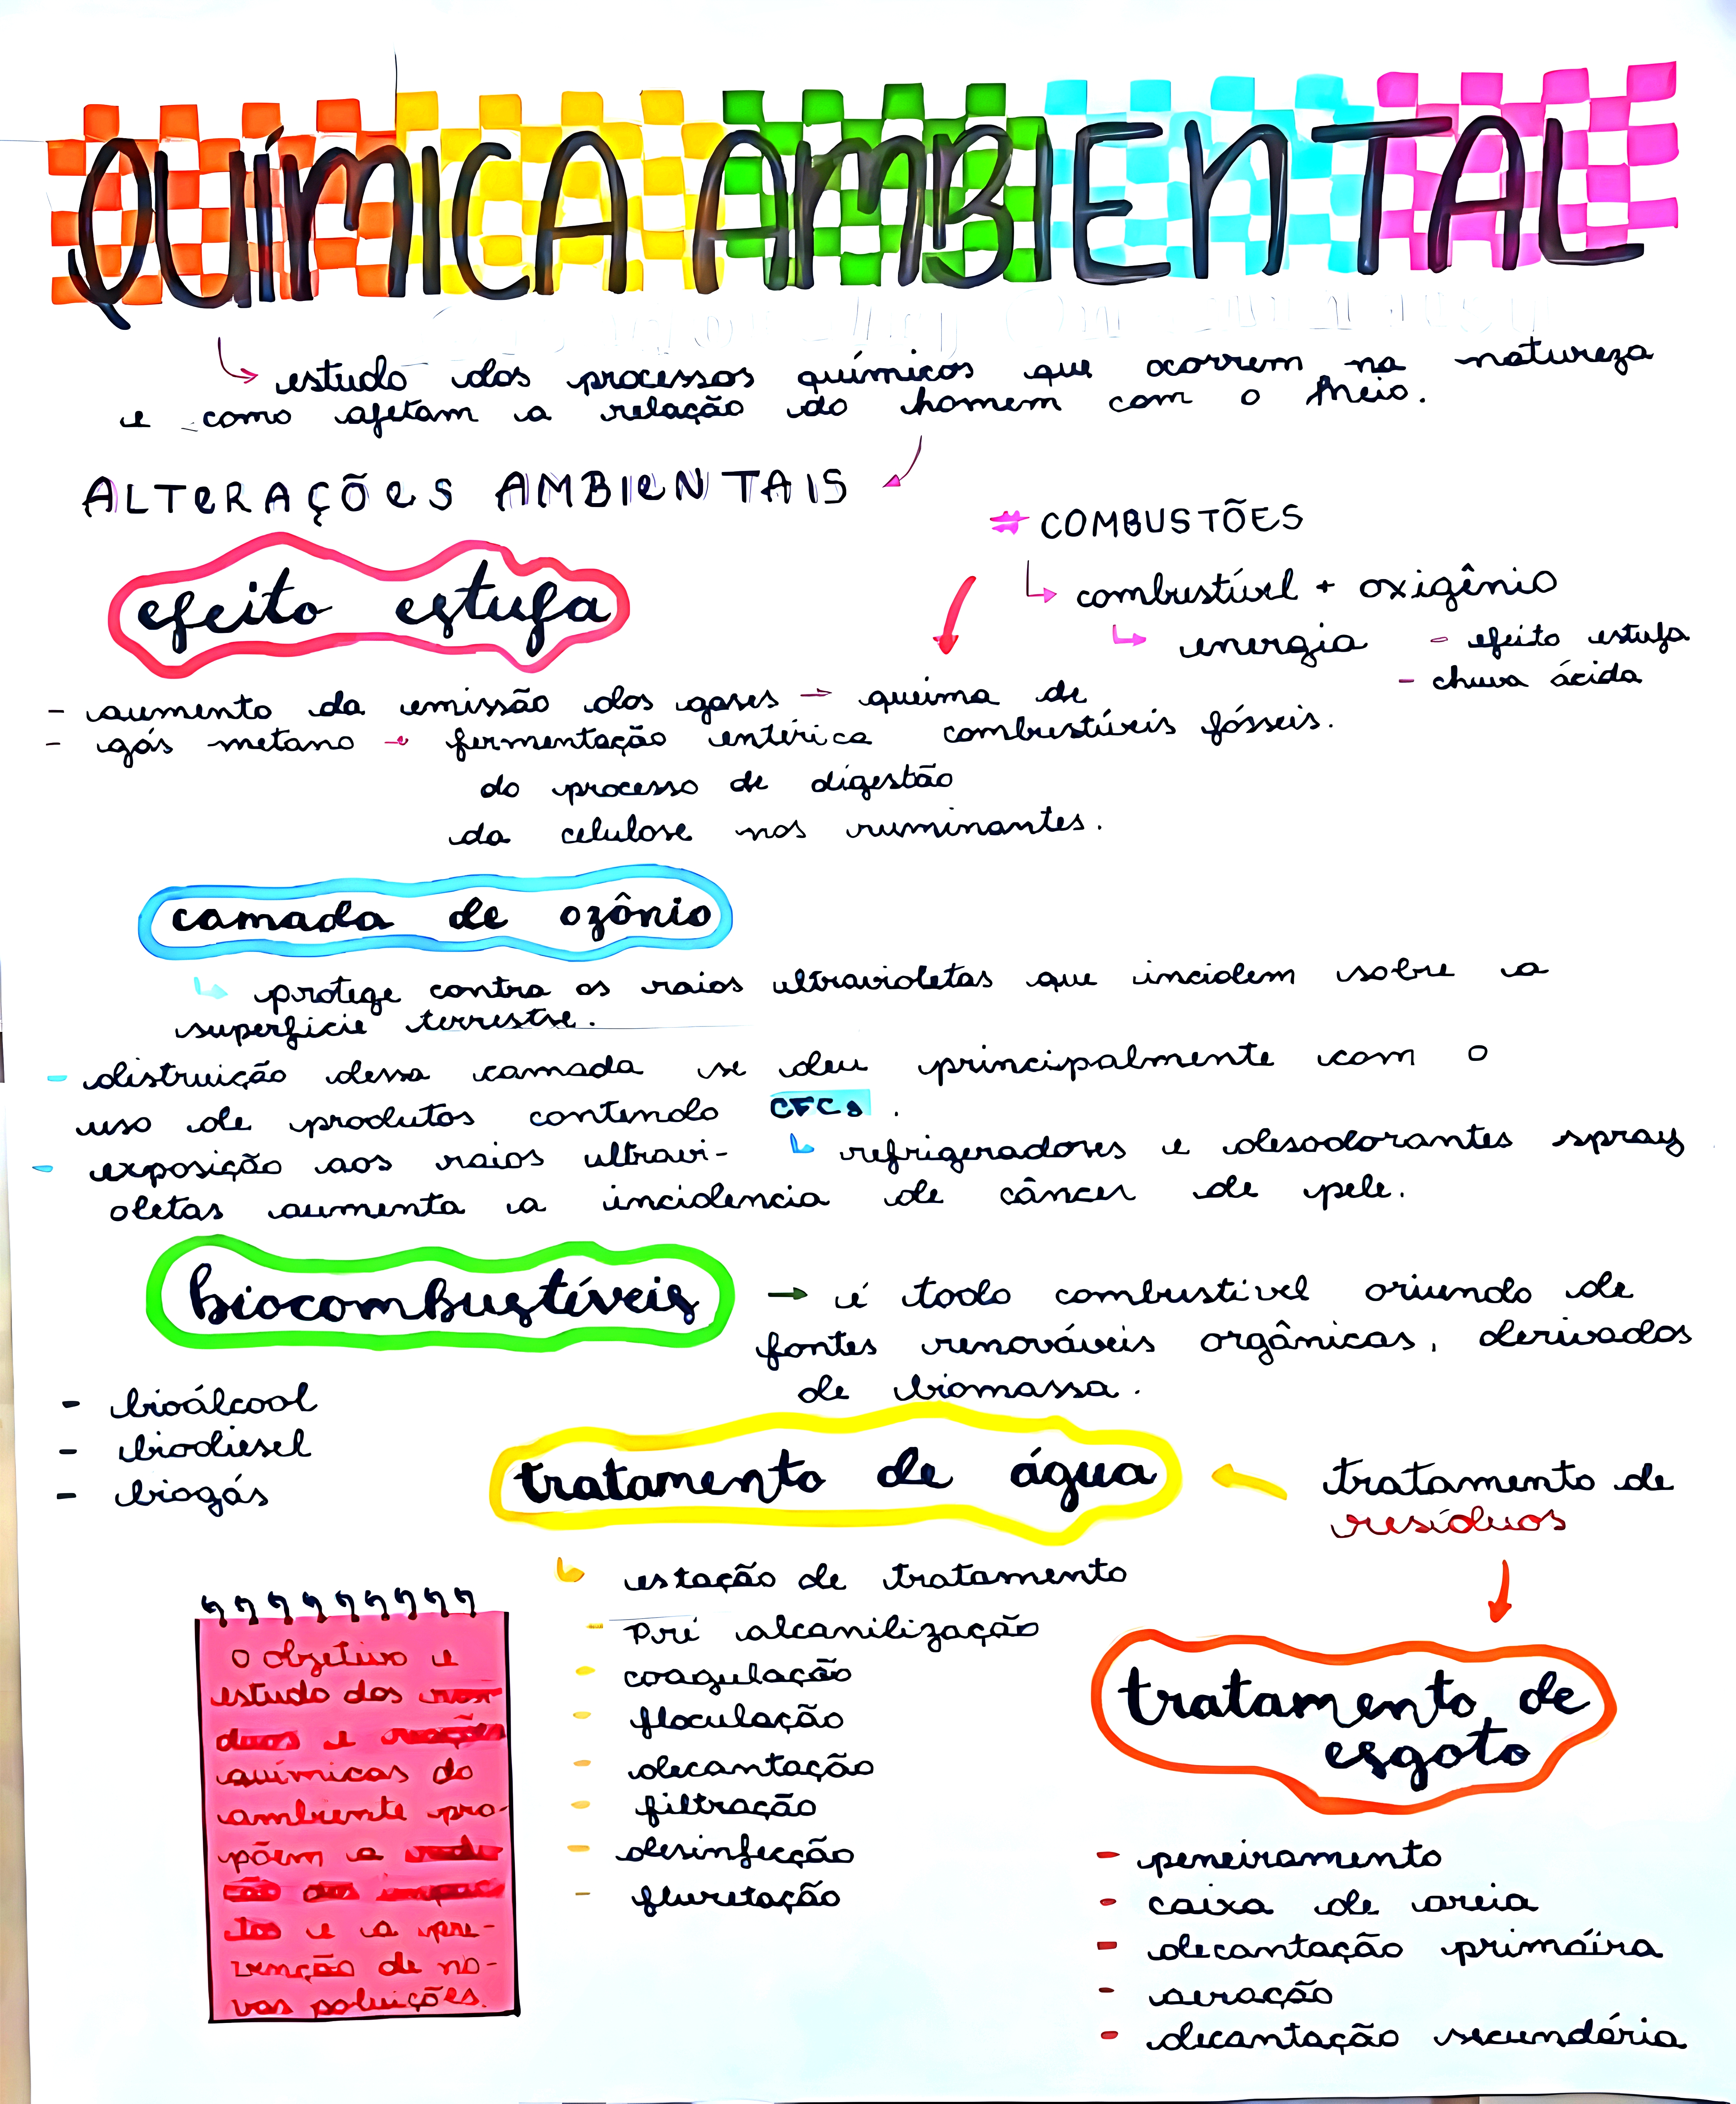 QUÍMICA AMBIENTAL
estudo dos processos químicos que ocorrem na natureza
e como afetam a relação do homem com o meio.
ALTERAÇÕES AMBIENTAIS
# COMBUSTÕES
combustível + oxigênio
energia - efeito estufa
- chuva ácida
efeito estufa
- aumento da emissão dos gases → queima de
combustíveis fósseis.
- gás metano → fermentação entérica
do processo de digestão
da celulose nos ruminantes.
camada de ozônio
protege contra os raios ultravioletas que incidem sobre a
superfície terrestre.
- distruição dessa camada se deu principalmente com o
uso de produtos contendo CFCs.
refrigeradores e desodorantes spray
- exposição aos raios ultravi-
oletas aumenta a incidencia de câncer de pele.
biocombustíveis
→ é todo combustível oriundo de
fontes renováveis orgânicas, derivados
de biomassa.
- bioálcool
- biodiesel
- biogás
tratamento de
resíduos
tratamento de água
estação de tratamento
- Pré alcanilização
- coagulação
- floculação
- decantação
- filtração
- desinfecção
- fluretação
tratamento de
esgoto
- peneiramento
- caixa de areia
- decantação primáira
- aeração
- decantação secundária
O objetivo e
estudo dos
e
químicas do
ambiente pro-
põem a
e a pre-
venção de no-
vas poluições.